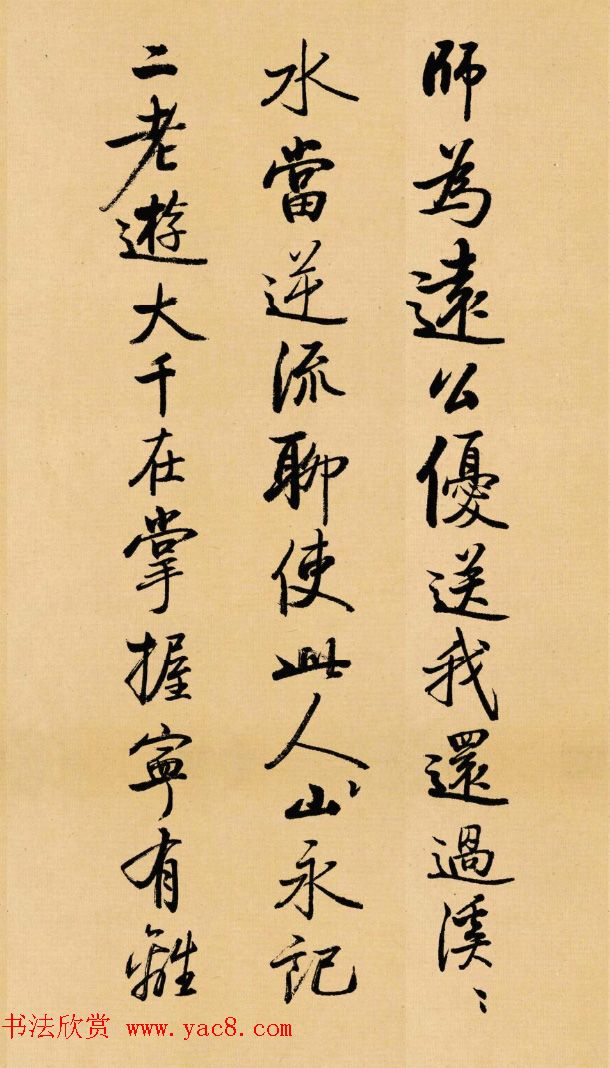 師為遠公優送我還過溪〻
水當逆流聊使此人山永記
二老遊大千在掌握寧有離
书法欣赏 www.yac8.com